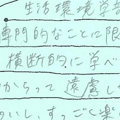 生活環境学部
専門的なことに限
横断的に学べ
からって遠慮し
いし、すっごく楽